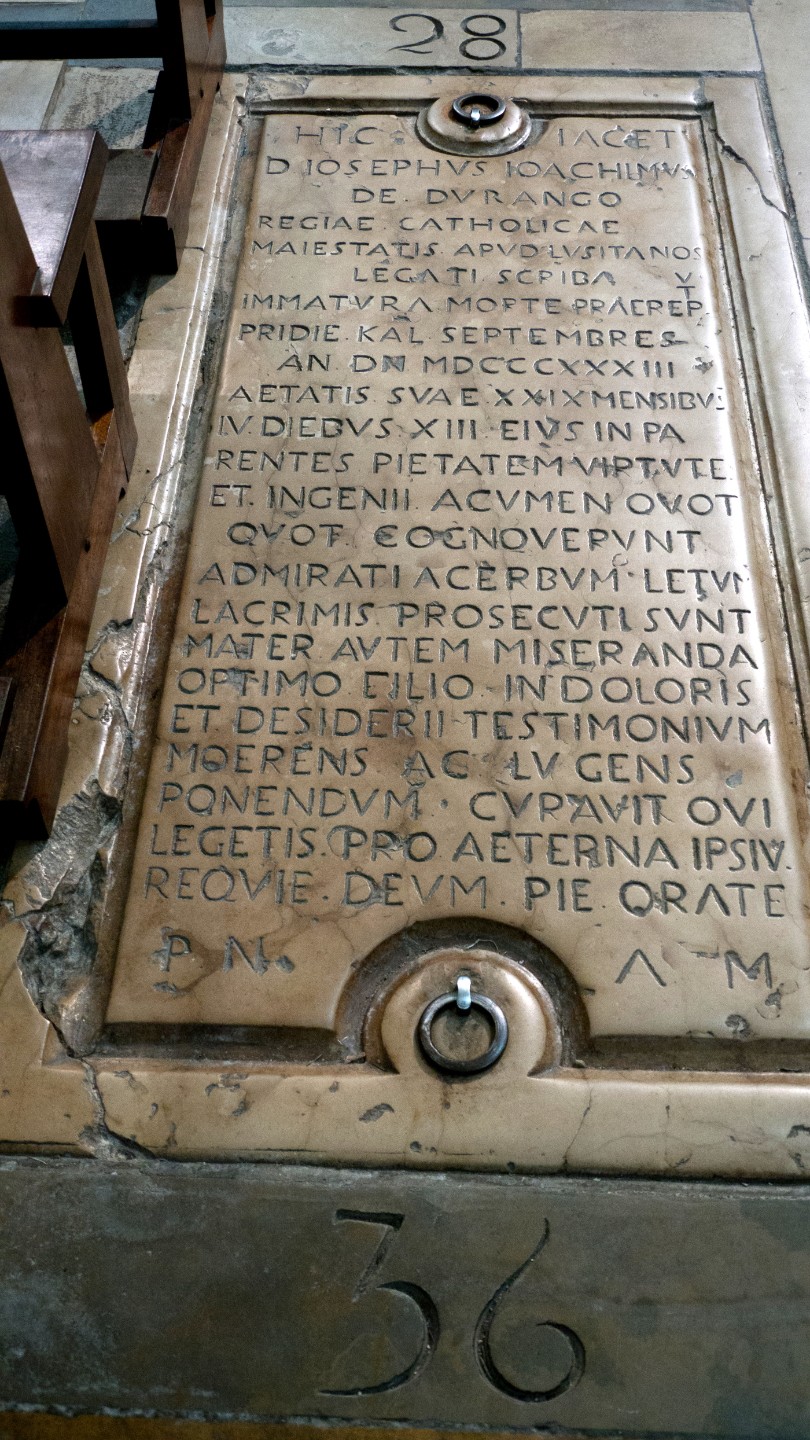 28
HIC IACET
D IOSEPHVS IOACHIMVS
DE. DVRANGO
REGIAE. CATHOLICAE
MAIESTATIS. APVD LVSITANOS
LEGATI SCRIBA
IMMATVRA MORTE PRAEREPVT
PRIDIE. KAL. SEPTEMBRES
AN DN MDCCCXXXIII
AETATIS. SVAE XXIX MENSIBVS
IV. DIEBVS. XIII. EIVS IN PA
RENTES PIETATEM VIRTVTE
ET. INGENII. ACVMEN QVOT
QVOT. COGNOVERVNT
ADMIRATI ACERBVM. LETVM
LACRIMIS. PROSECVTI. SVNT
MATER AVTEM MISERANDA
OPTIMO. FILIO. IN DOLORIS
ET. DESIDERII TESTIMONIVM
MOERENS AC LVGENS
PONENDVM. CVRAVIT QVI
LEGETIS. PRO AETERNA IPSIV.
REQVIE. DEVM. PIE ORATE
P N. A M
36